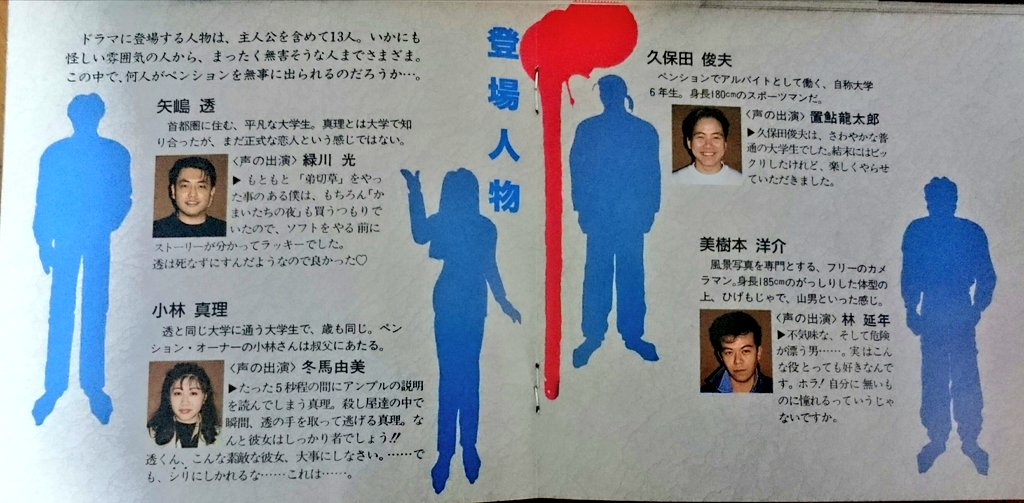 ドラマに登場する人物は、主人公を含めて13人。いかにも
怪しい雰囲気の人から、まったく無害そうな人までさまざま。
この中で、何人がペンションを無事に出られるのだろうか…。
矢嶋 透
首都圏に住む、平凡な大学生。真理とは大学で知
り合ったが、まだ正式な恋人という感じではない。
〈声の出演〉緑川 光
▶もともと「弟切草」をやっ
た事のある僕は、もちろん「か
まいたちの夜」も買うつもりで
いたので、ソフトをやる前に
ストーリーが分かってラッキーでした。
透は死なずにすんだようなので良かった♡
小林 真理
透と同じ大学に通う大学生で、歳も同じ。ペン
ション・オーナーの小林さんは叔父にあたる。
〈声の出演〉冬馬由美
▶たった5秒程の間にアンプルの説明
を読んでしまう真理。殺し屋達の中で
瞬間、透の手を取って逃げる真理。な
んと彼女はしっかり者でしょう!!
透くん、こんな素敵な彼女、大事にしなさい。……で
も、シリにしかれるな……これは……。
登場人物
久保田 俊夫
ペンションでアルバイトとして働く、自称大学
6年生。身長180cmのスポーツマンだ。
〈声の出演〉置鮎龍太郎
▶久保田俊夫は、さわやかな普
通の大学生でした。結末にはビッ
クリしたけれど、楽しくやらせ
ていただきました。
美樹本 洋介
風景写真を専門とする、フリーのカメ
ラマン。身長185cmのがっしりした体型の
上、ひげもじゃで、山男といった感じ。
〈声の出演〉林 延年
▶不気味な、そして危険
が漂う男……。実はこん
な役とっても好きなんで
す。ホラ!自分に無いも
のに憧れるっていうじゃ
ないですか。